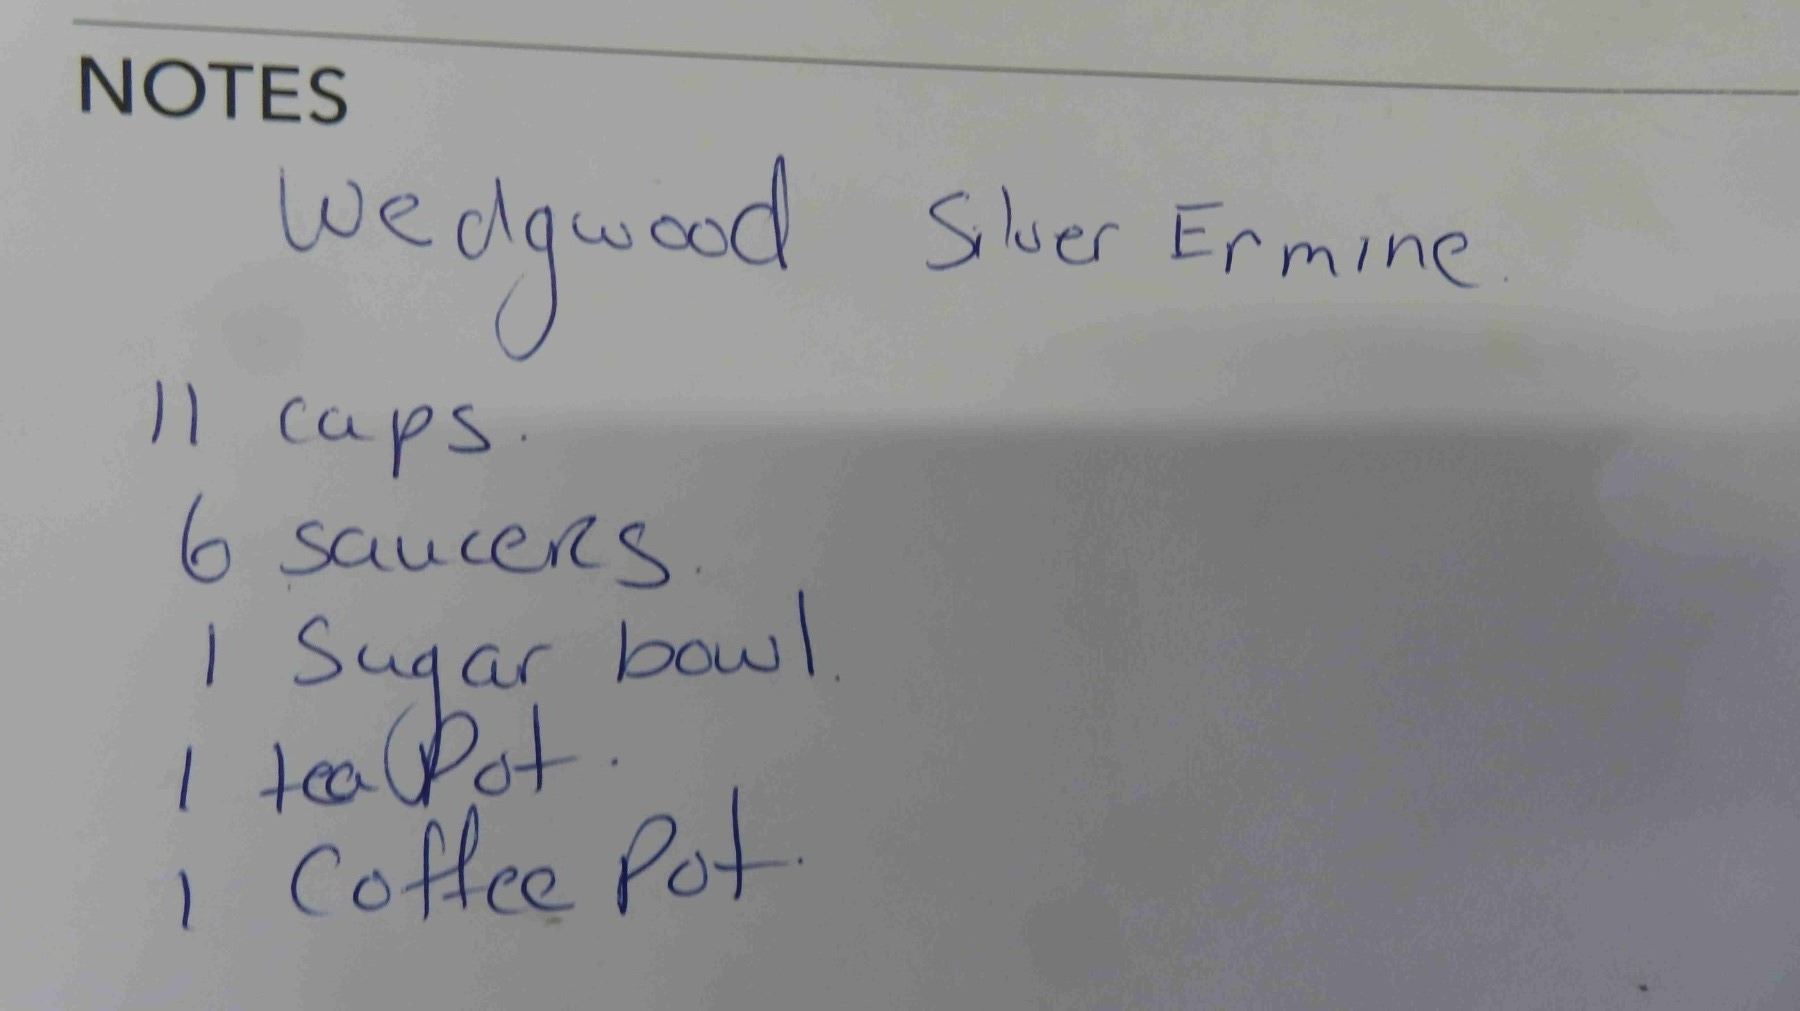 NOTES
Wedgwood Silver Ermine.
11 cups.
6 saucers.
1 Sugar bowl.
1 tea Pot.
1 Coffee Pot.